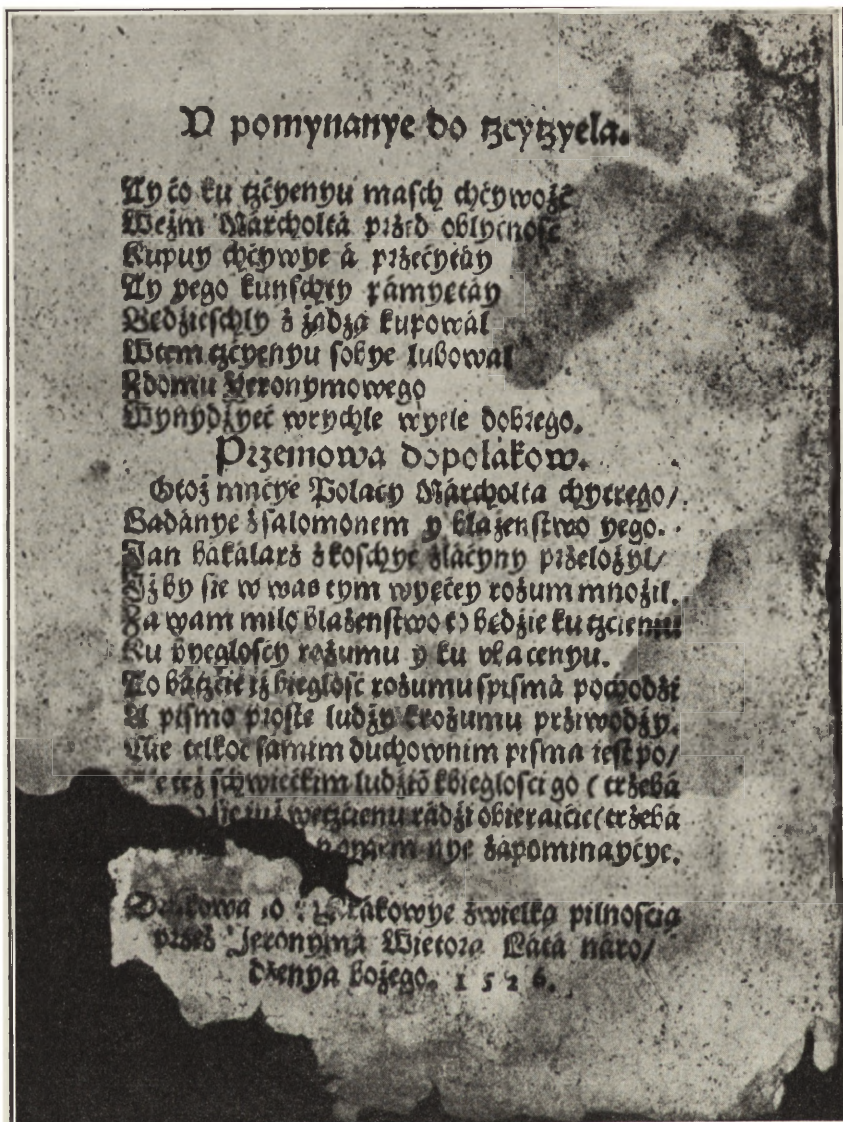 V pomynanye do tzcytzyela.
Ty čo ku tzčyenyu masch chčywość
Weźm Marcholta przed oblyčnosć
Kupuy chčywye á przečytáy
Ty yego kunschty pámyetáy
Bedzieschly z żądzą kupowál
Wtem tzčyenyu sobye lubowal
Zdomu Yeronymowego
Wynydzyeć wrychle wyele dobrego.
Przemowa dopolakow.
Otoż mnčye Polacy Márcholta chytrego/
Badánye zsalomonem y blazenstwo yego.
Jan bákálarz zkoschyc zláčyny przelożyl/
Jżby sie w was tym wyęcey rozum mnożil.
Za wam milo blazenstwo to będzie ku tzcieniu
Ku byeglosčy rozumu y ku
To bátzćie iż bieglość rozumu spismá pochodźi
A pismo proste ludzy krozumu prziwodzy.
Nie telkoć samim duchownim pisma iest po/
też schwieckim ludziō kbieglosci go ( trzebá
sie iuż wetzcienu rádzi obieraicie(trzebá
nye zapominayčye.
zwielką pilnoscią
przez Jeronymá Wietorá Látá náro/
dzenya bożego. 1526.